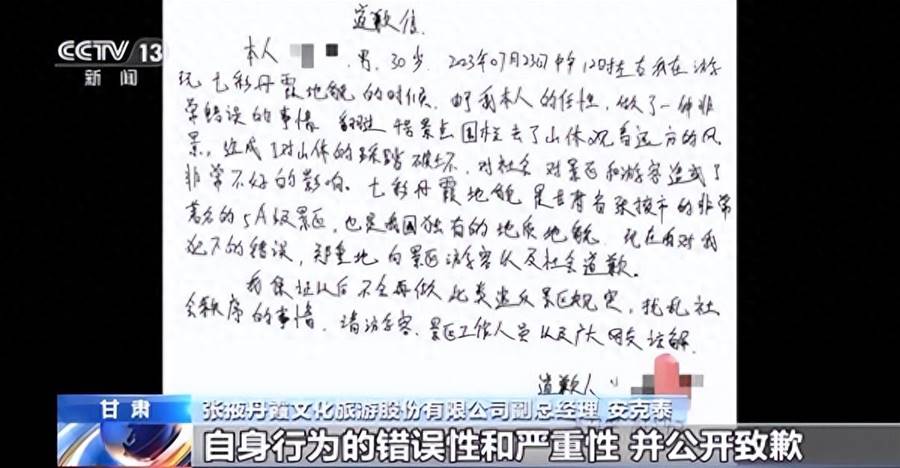 CCTV 13
新闻
道歉信
本人 ，男，30岁，2023年07月23日中午12时左右我在游
玩七彩丹霞地貌的时候，由于我本人的任性，做了一件非
常错误的事情，翻越 景点围栏去了山体观看远方的风
景，造成了对山体的踩踏破坏，对社会对景区和游客造成了
非常不好的影响。七彩丹霞地貌是甘肃省张掖市的非常
著名的5A级景区，也是我国独有的地质地貌，现在 对我
犯下的错误，郑重地向景区游客以及社会道歉。
我保证以后不会再做此类违反景区规定，扰乱社
会秩序的事情，请游客、景区工作人员以及广大网友谅解
道歉人
甘肃
张掖丹霞文化旅游股份有限公司副总经理 安克泰
自身行为的错误性和严重性 并公开致歉